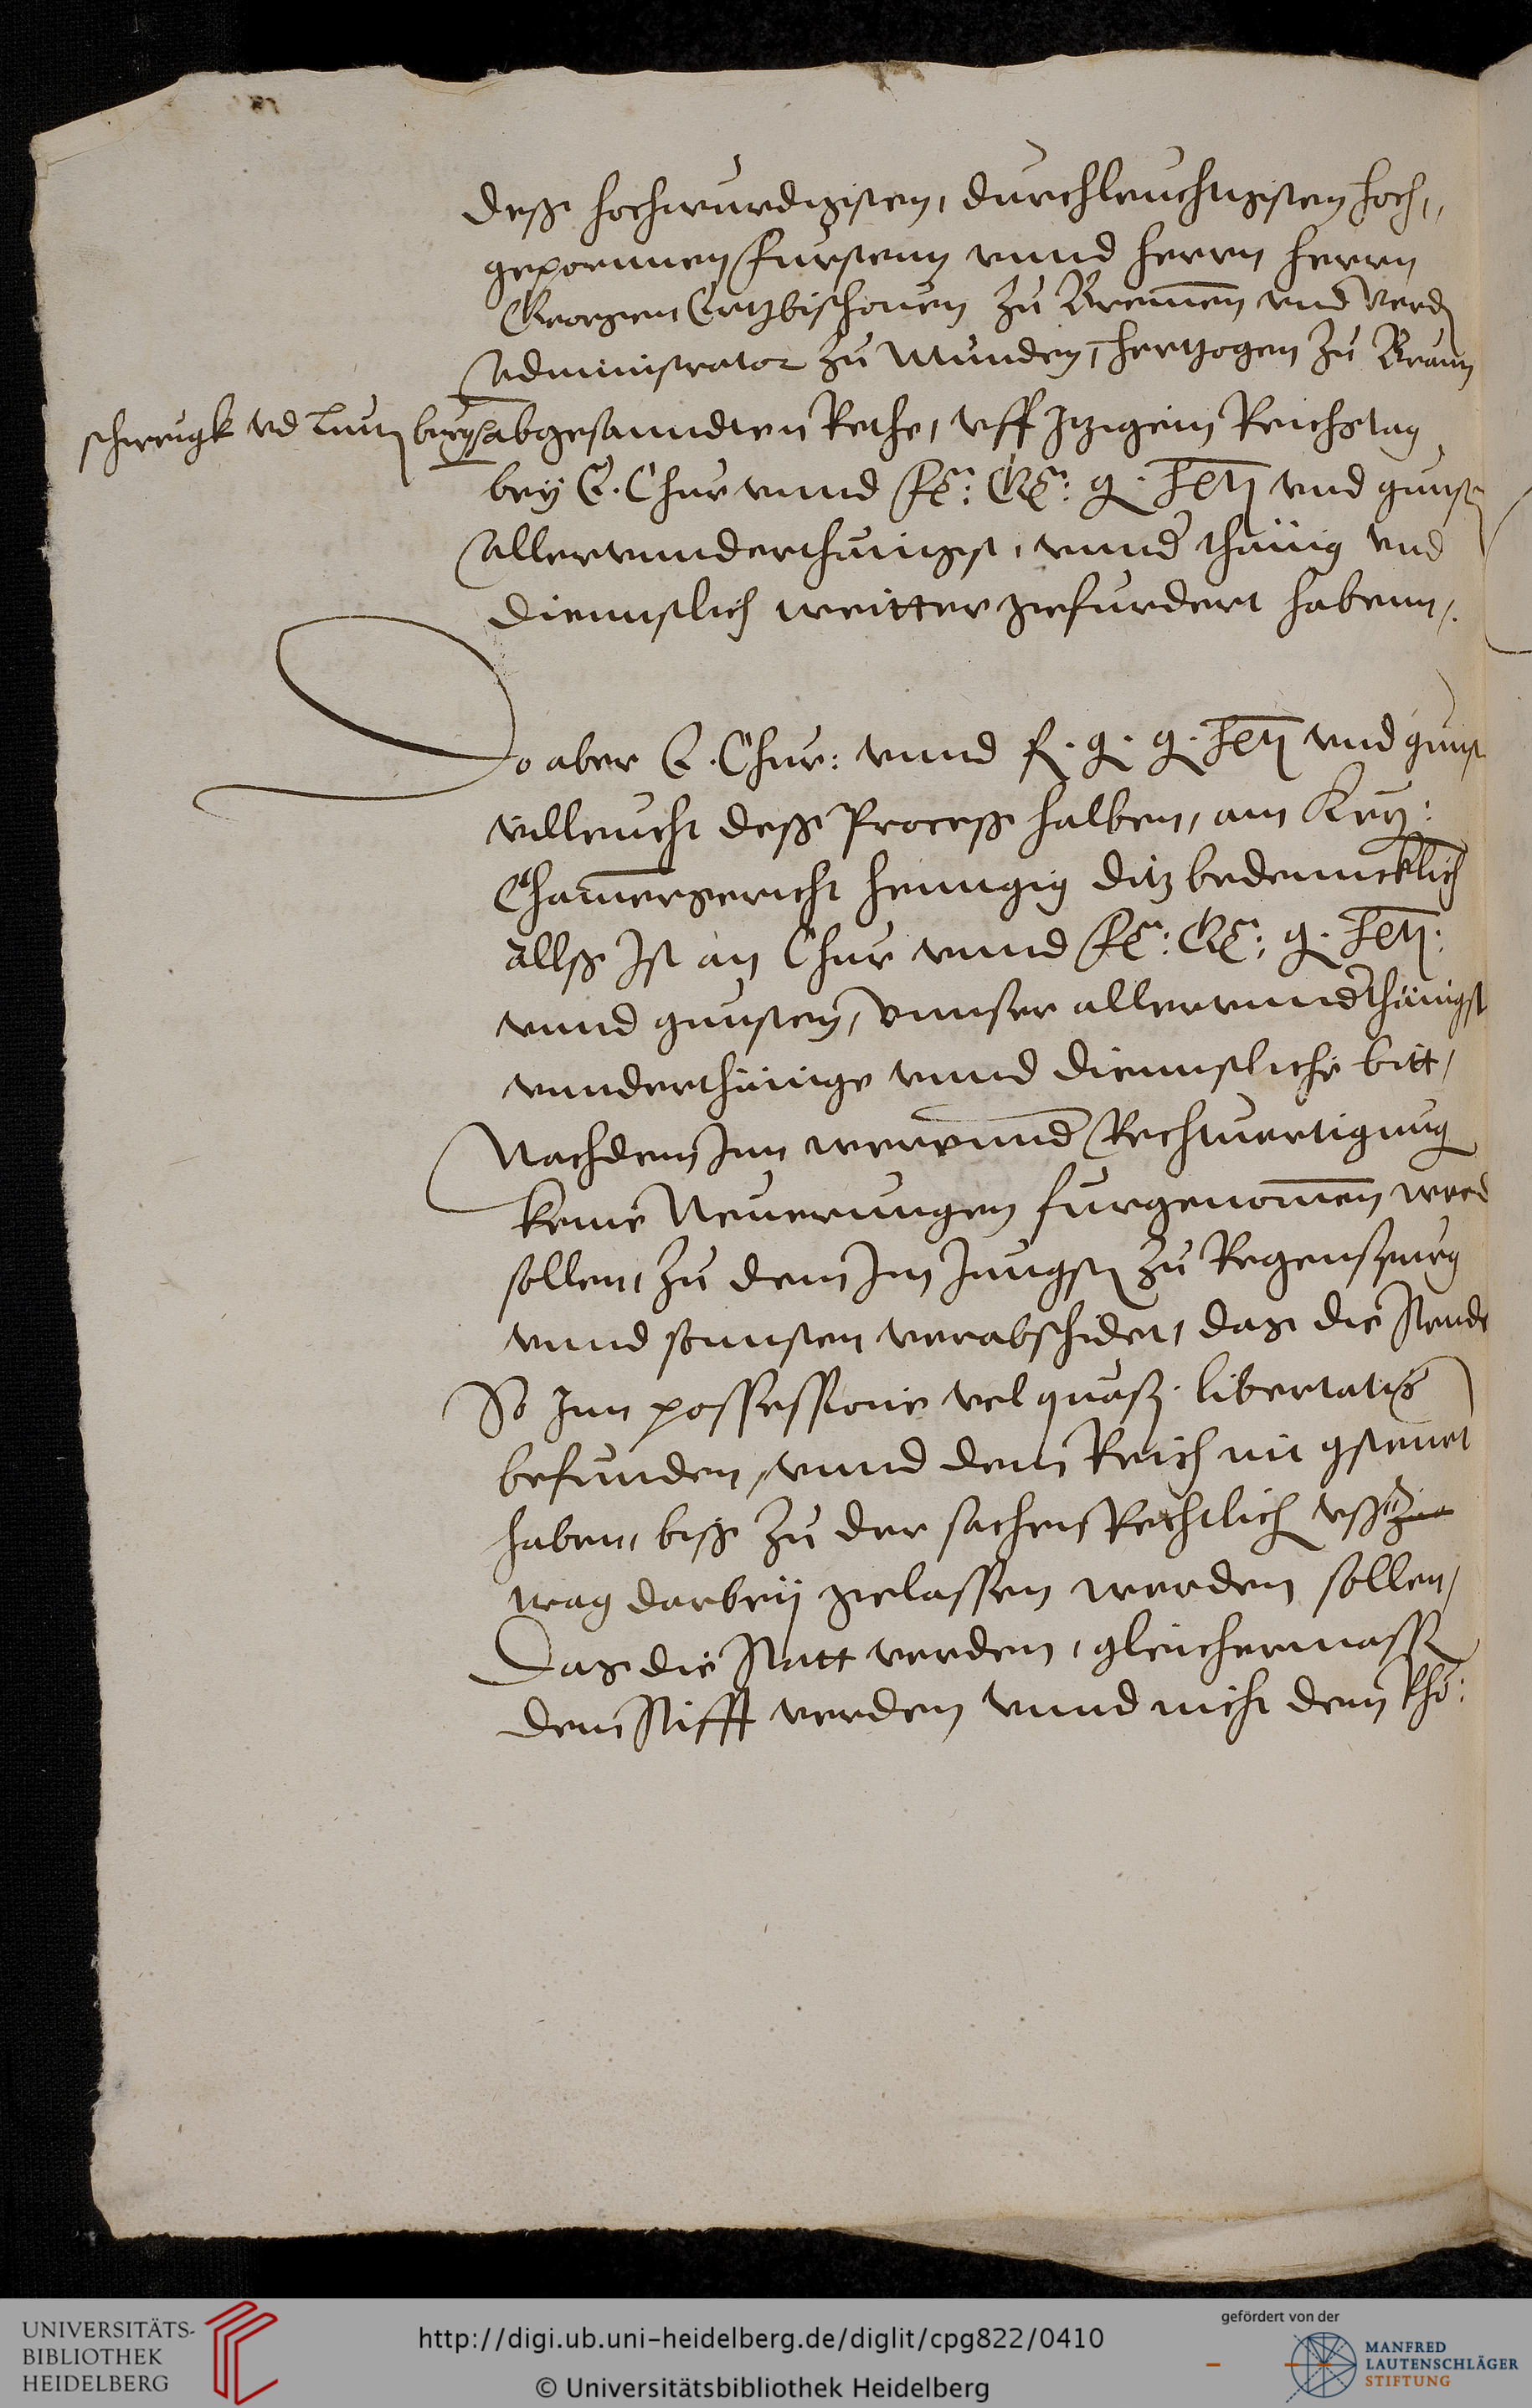 desse hochwurdigisten, durchleuchtigisten hoch„
gepornnen furstenn vnnd herrn herrn
Georgien Ertzbischouen zu Bremen vnd Verd
Administrator zu Munden, hertzogen zu Braun
schweigk vd Lun burg abgesanndten Rethe, vff Itzigem Reichstag
bey E. Chur vnnd g. vnd gunst
allervnnderthenigst, vnnd thenig vnd
diennstlich weitter gefurdert habenn.
Do aber E. Chur: vnnd f. g. g. vnd gunst
villeucht desse Process halben, am Key:
Chamergericht henngig ditz bedennncklich
allss Ist an Chur vnnd g.
vnnd gunsten, vnnser allervnnderthenigst
vnnderthenige vnnd diennstliche bitt,
Nachdem Inn werennd Rechtuertigung
keine Neuerungen furgenomen werd
sollen, zu dem Im Jungst zu Regenspurg
vnnd sonnsten verabschidet, das die Stende
So Inn possessione vel quasi libertatis
befunden, vnnd dem Reich nit gsteuret
haben, biss zu der sachen Rechtlich vss
trag darbey gelassen werden sollen,
Das die Statt verden, gleichermass
dem Stifft verden vnnd nicht dem
UNIVERSITÄTS-
BIBLIOTHEK
HEIDELBERG
http://digi.ub.uni-heidelberg.de/diglit/cpg822/0410
© Universitätsbibliothek Heidelberg
gefördert von der
MANFRED
LAUTENSCHLÄGER
STIFTUNG